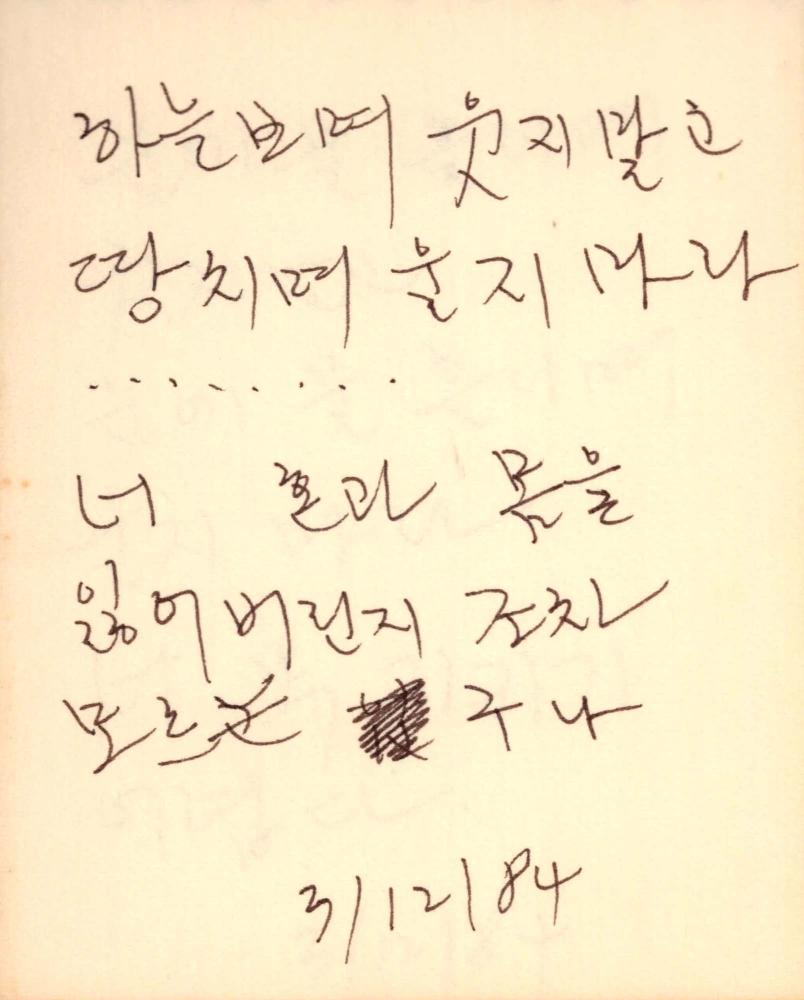 하늘보며 웃지말고
땅치며 울지 마라
.........
너 혼과 몫을
잃어버린지 조차
모르는 구나
3/12/84